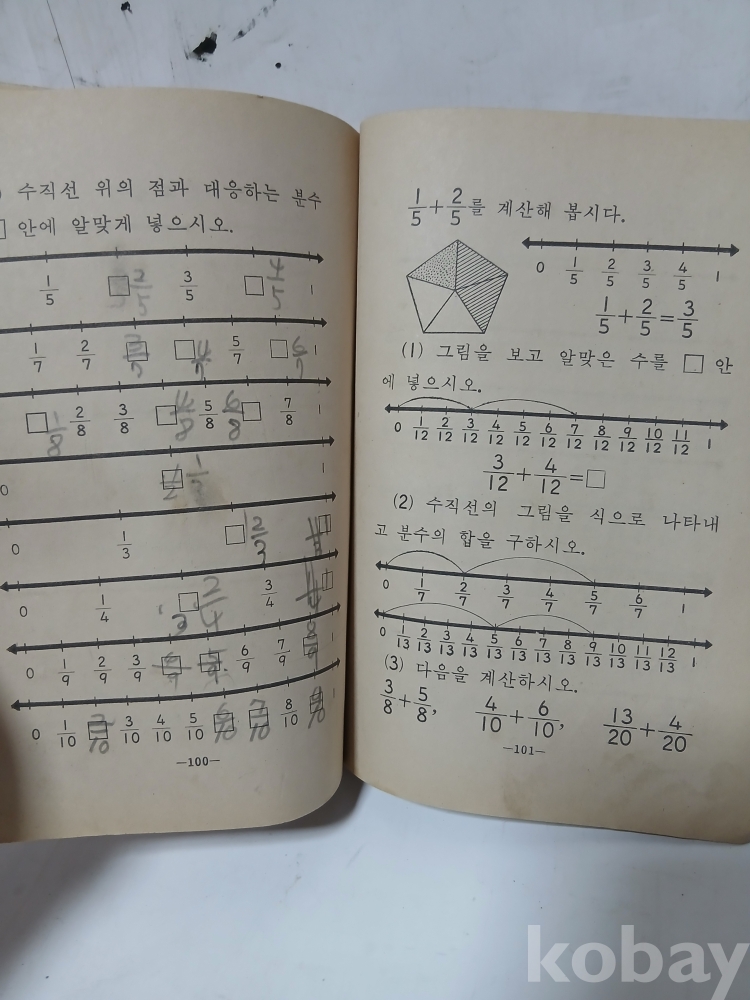 수직선 위의 점과 대응하는 분수
□ 안에 알맞게 넣으시오.
1/5 □ 2/5 3/5 □ 4/5 1
1/7 2/7 □ 3/7 □ 4/7 5/7 □ 6/7 1
□ 1/8 2/8 3/8 □ 4/8 5/8 6/8 □ 7/8 1
0 □ 1/2 1
0 1/3 □ 2/3 □
0 1/4 □ 2/4 3/4 □
0 1/9 2/9 3/9 □ □ 6/9 7/9 □ 1
0 1/10 □ 3/10 4/10 5/10 □ 6/10 □ 7/10 8/10 □ 1
—100—
1/5+2/5를 계산해 봅시다.
0 1/5 2/5 3/5 4/5 1
1/5+2/5=3/5
(1) 그림을 보고 알맞은 수를 □ 안
에 넣으시오.
0 1/12 2/12 3/12 4/12 5/12 6/12 7/12 8/12 9/12 10/12 11/12 1
3/12+4/12=□
(2) 수직선의 그림을 식으로 나타내
고 분수의 합을 구하시오.
0 1/7 2/7 3/7 4/7 5/7 6/7 1
0 1/13 2/13 3/13 4/13 5/13 6/13 7/13 8/13 9/13 10/13 11/13 12/13 1
(3) 다음을 계산하시오.
3/8+5/8, 4/10+6/10, 13/20+4/20
—101—
kobay